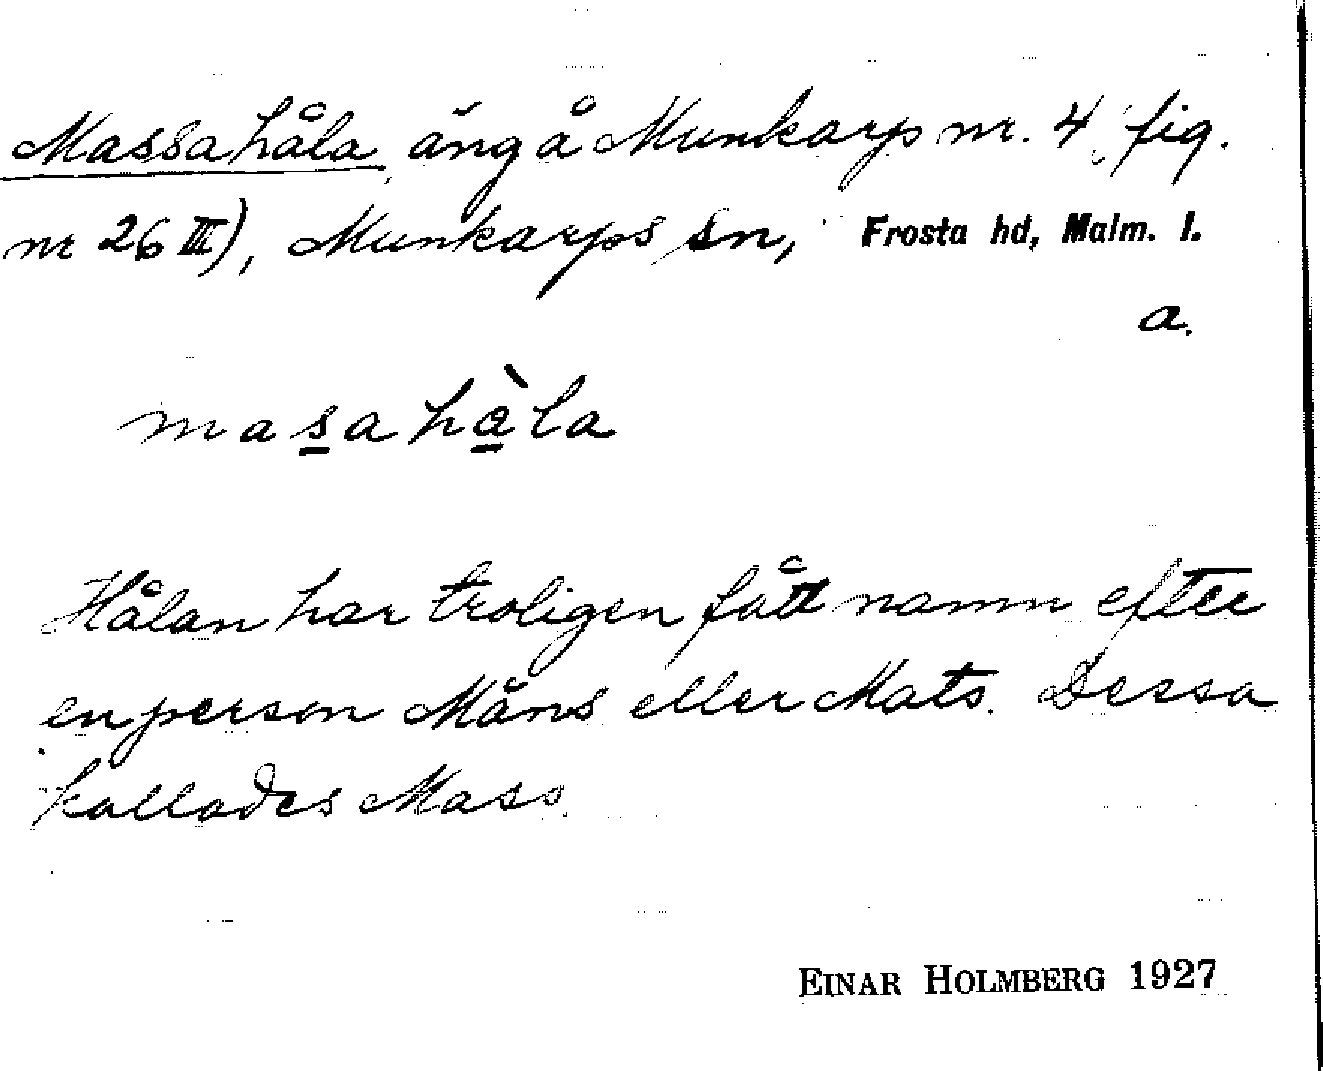 Massahåla, äng å Munkarp nr. 4, fig.
nr 26 III), Munkarps sn, Frosta hd, Malm. l.
a.
masahàla
Hålan har troligen fått namn efter
en person Måns eller Mats. Dessa
kallades Mass.
EINAR HOLMBERG 1927